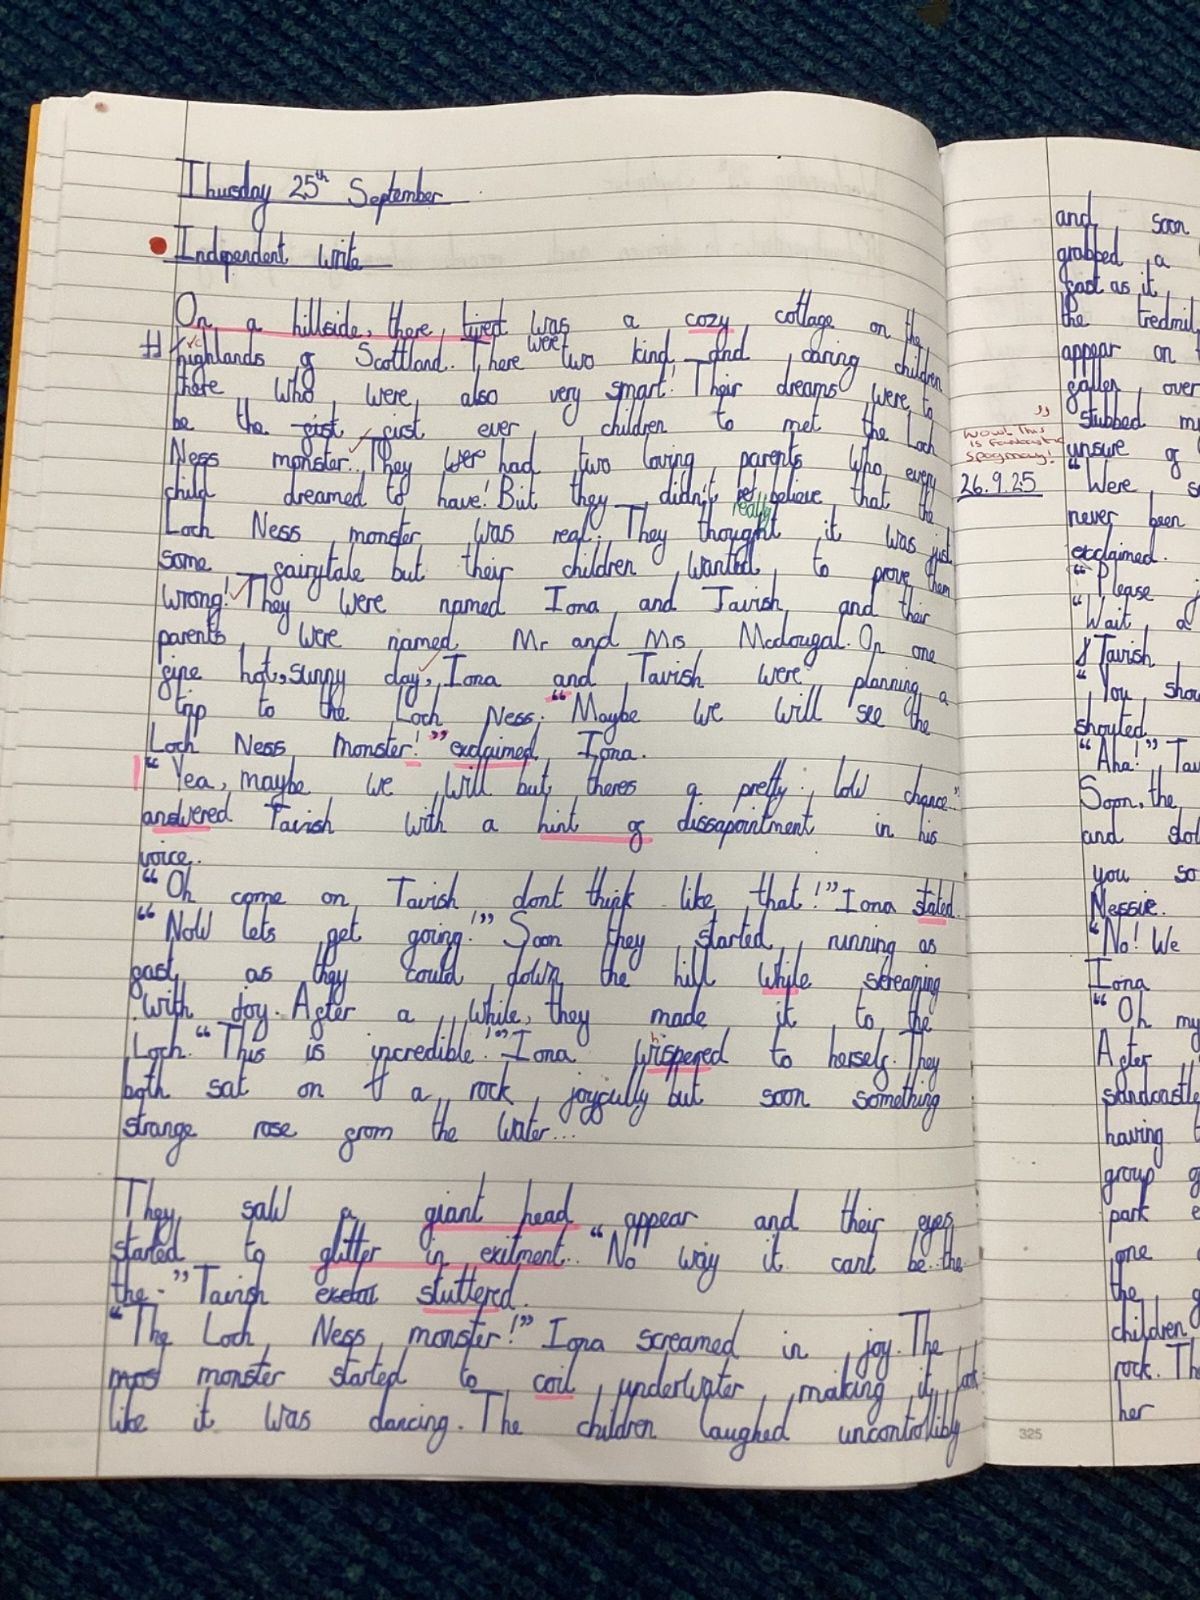 Thusday 25th September
Independent write
On a hillside, there, lived was a cozy cottage on the
H highlands of Scottland. There were two kind and caring children
there who were also very smart! Their dreams were to
be the fist fist ever children to met the Loch
Ness monster. They were had two loving parents who every
child dreamed to have! But they didn't be believe that the
really
Loch Ness monster was real. They thought it was just
some fairytale but their children wanted to prove them
wrong! They were named Iona and Tavish and their
parents were named Mr and Mrs Mcdougal. On one
fine hot, sunny day, Iona and Tavish were planning a
trip to the Loch Ness. "Maybe we will see the
Loch Ness monster!" exclaimed Iona.
"Yea, maybe we will but theres a pretty low chance."
answered Tavish with a hint of dissapointment in his
voice.
"Oh come on Tavish dont think like that!" Iona stated.
"Now lets get going!" Soon they started running as
fast as they could down the hill while screaming
with joy. After a while, they made it to the
Loch. "This is incredible!" Iona whispered to herself. They
both sat on a rock joyfully but soon something
strange rose from the water...
They saw a giant head appear and their eyes
started to glitter in exitment. "No way it cant be the
the-" Tavish stuttered.
"The Loch Ness monster!" Iona screamed in joy. The
monster started to coil underwater making it look
like it was dancing. The children laughed uncontrollibly
Wow! This
is fantastic
Spagmony!
26.9.25
and soon
grabbed a
fast as it
the tredmil
appear on
faller over
stubbed m
unsure of
"Were s
never been
exclaimed.
"Please
"Wait, a
Tavish
"You shou
shouted.
"Aha!" Tav
Soon, the
and slo
you so
Nessie.
"No! We
Iona
"Oh my
After
sandcastle
having
group of
park
one
the
children
rock. Th
her
325